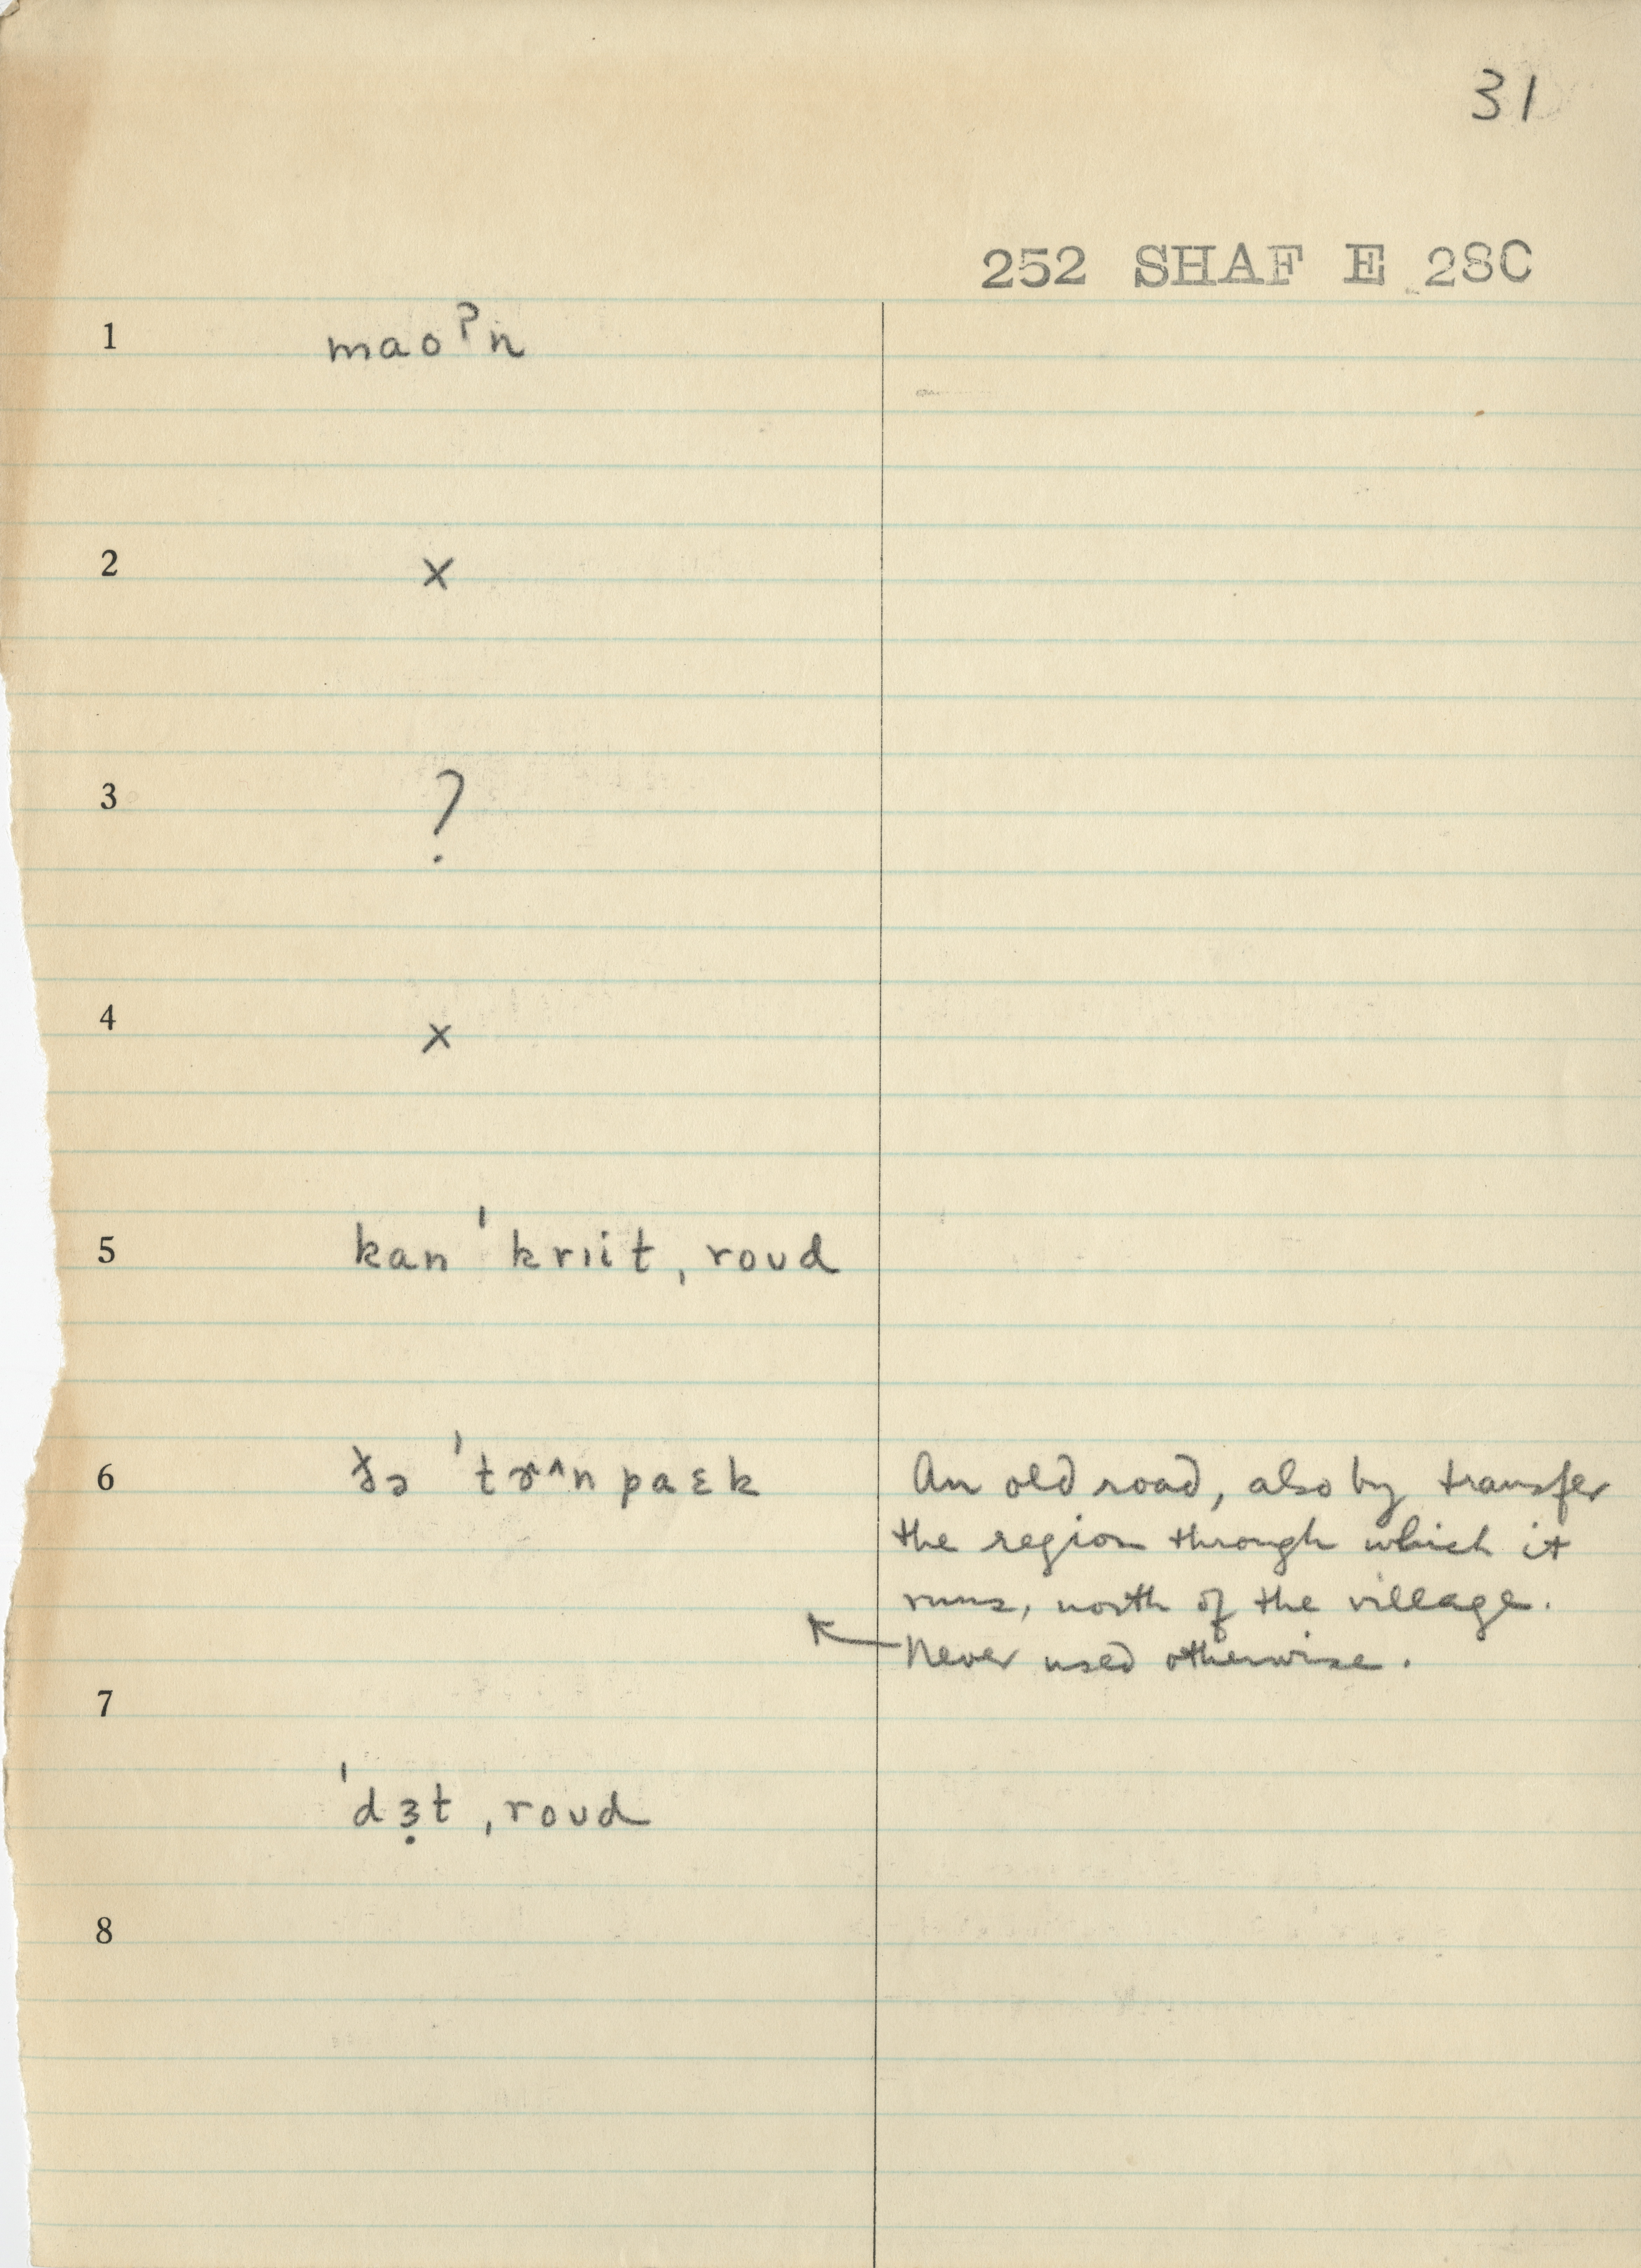 31
252 SHAF E 28C
1 maoˀn
2 ×
3 ?
4 ×
5 kan ˈkrɪit, roʊd
6 ðə ˈtɚʌnpaɛk An old road, also by transfer
the region through which it
runs, north of the village.
← Never used otherwise.
7
ˈdɜ̣t, roʊd
8